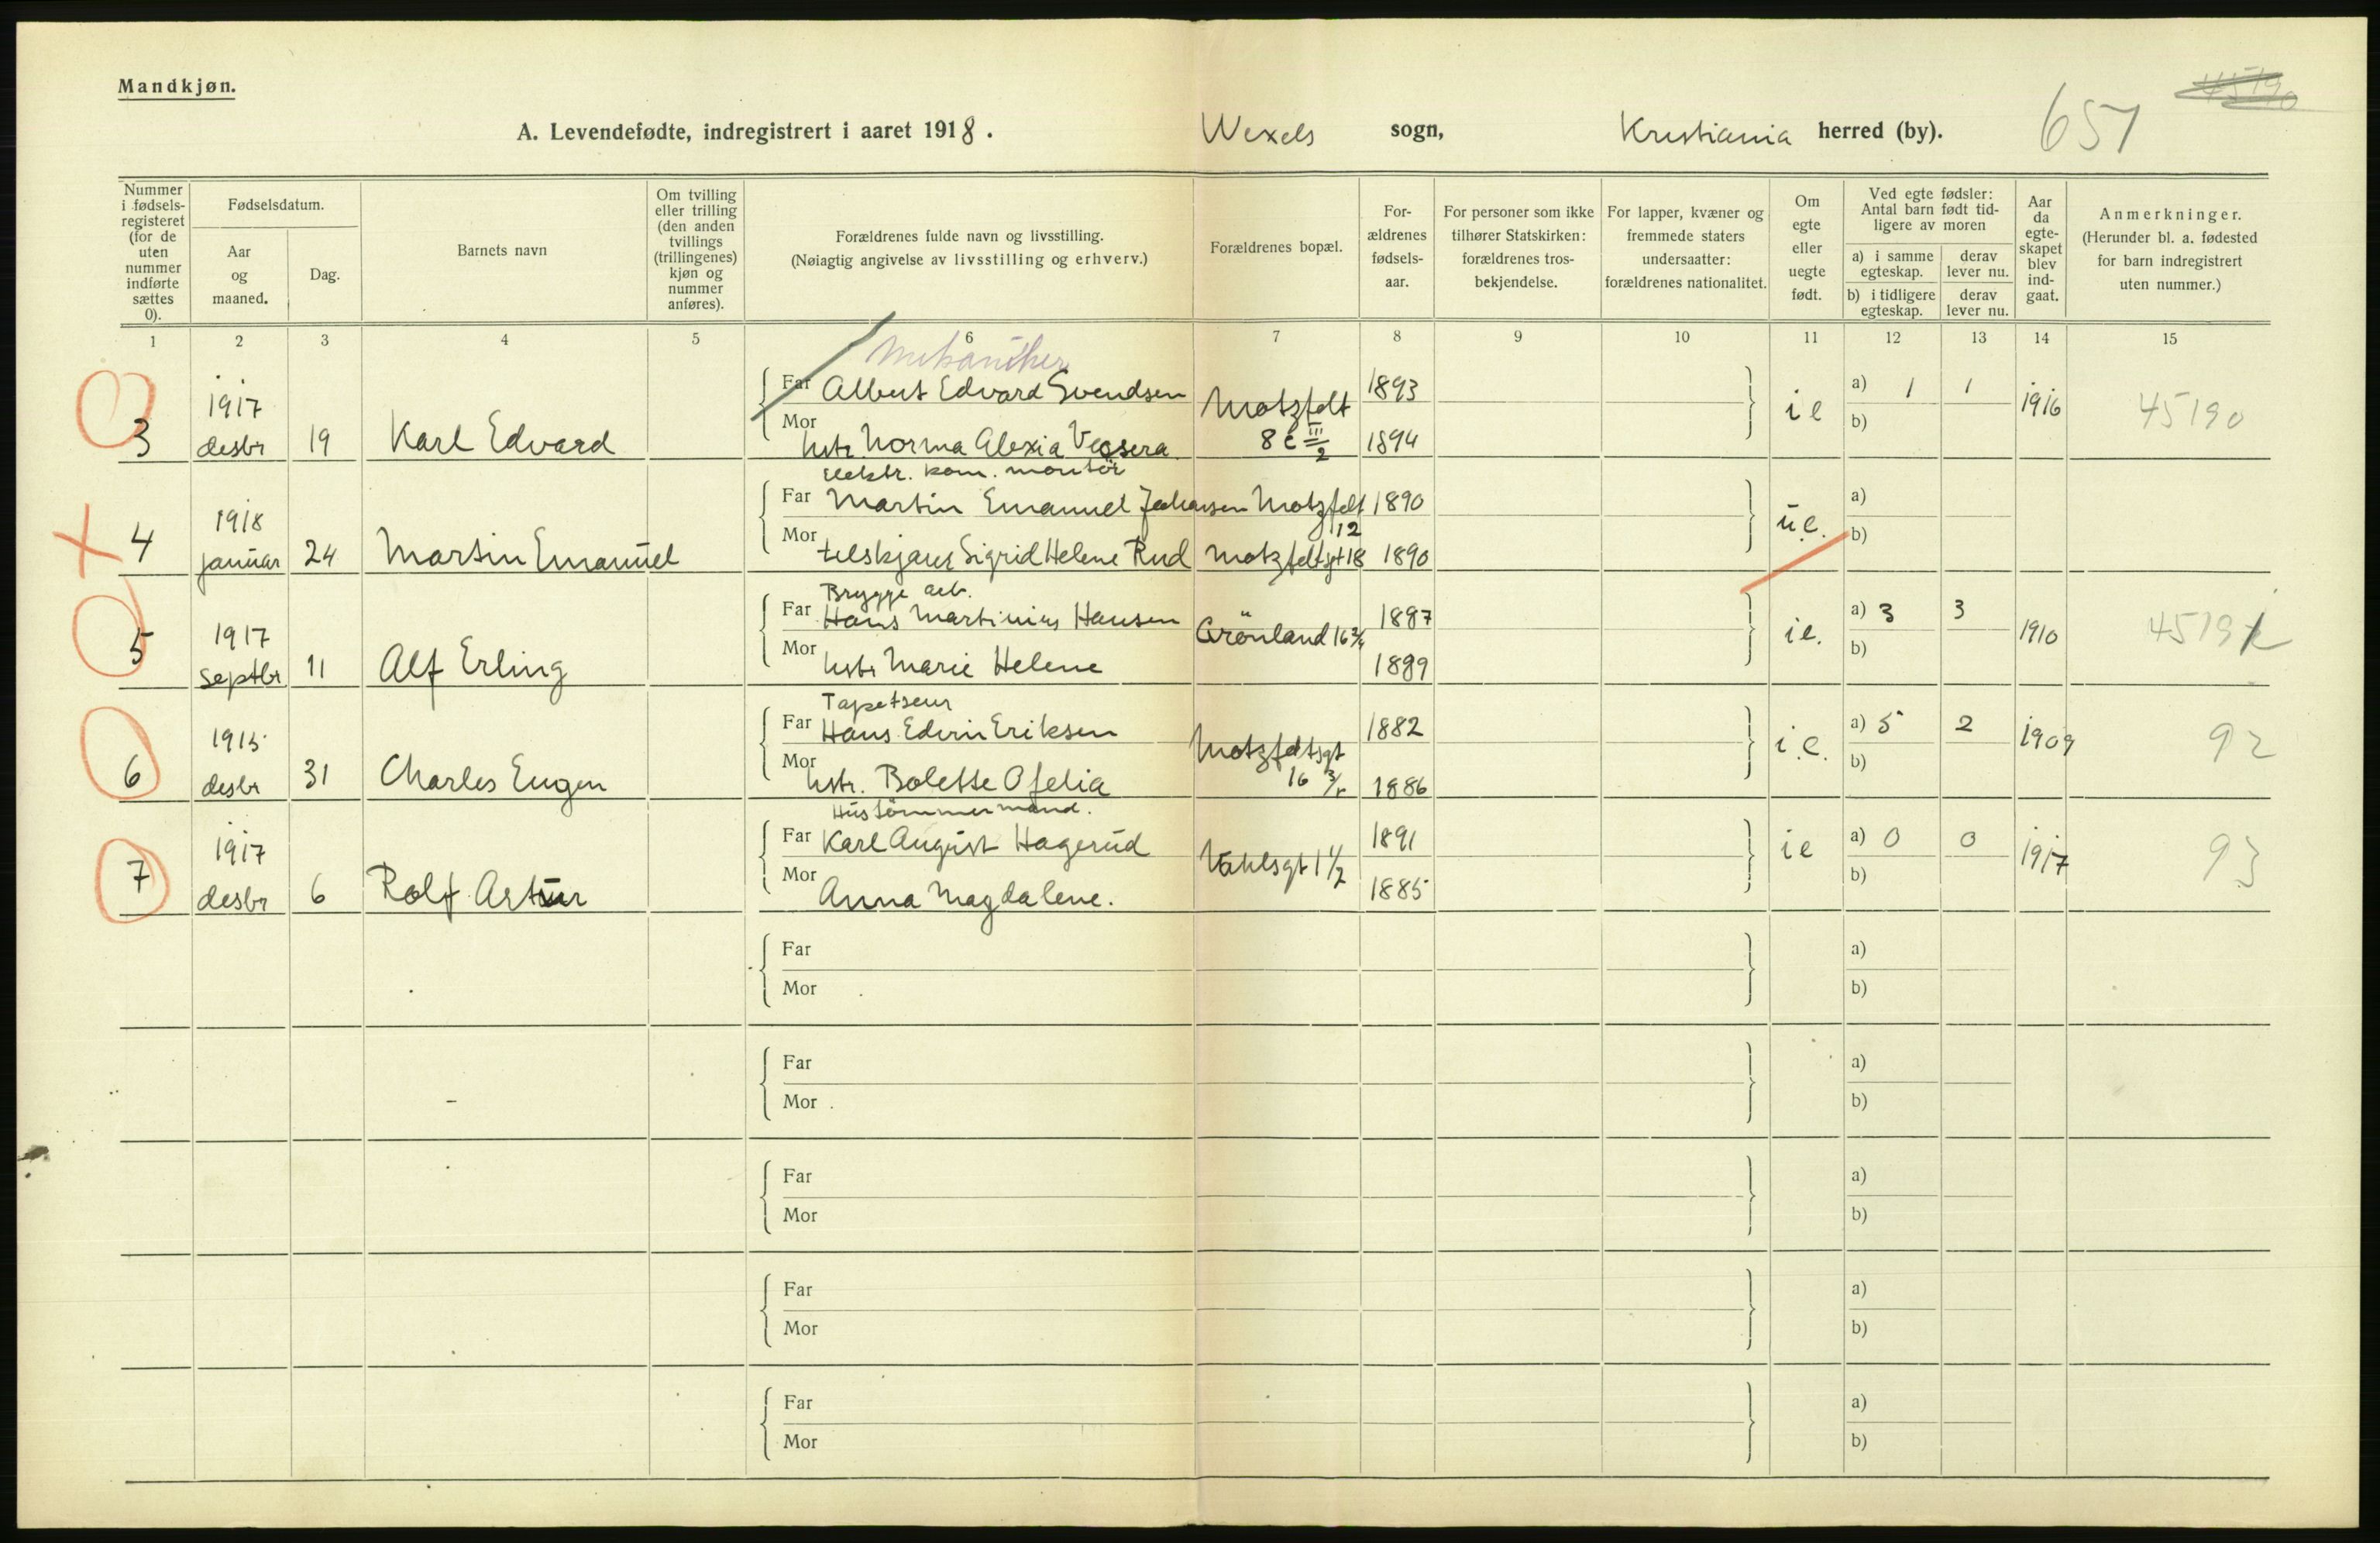 Mandkjøn.
45190
A. Levendefødte, indregistrert i aaret 1918. Wexels sogn, Kristiania herred (by). 651
Nummer i fødselsregisteret (for de uten nummer indførte sættes 0).
Fødselsdatum.
Aar og maaned.
Dag.
Barnets navn
Om tvilling eller trilling (den anden tvillings (trillingenes) kjøn og nummer anføres).
Forældrenes fulde navn og livsstilling.
(Nøiagtig angivelse av livsstilling og erhverv.)
Forældrenes bopæl.
For-ældrenes fødsels-aar.
For personer som ikke tilhører Statskirken: forældrenes tros-bekjendelse.
For lapper, kvæner og fremmede staters undersaatter: forældrenes nationalitet.
Om egte eller uegte født.
Ved egte fødsler: Antal barn født tid-ligere av moren
a) i samme egteskap. derav lever nu.
b) i tidligere egteskap. derav lever nu.
Aar da egte-skapet blev ind-gaat.
Anmerkninger.
(Herunder bl. a. fødested for barn indregistrert uten nummer.)
1 2 3 4 5 6 7 8 9 10 11 12 13 14 15
Mekaniker
1917 Far Albert Edvard Svendsen Motzfelt 1893 ie a) 1 1 1916 45190
3 desbr 19 Karl Edvard Mor hstr Norma Alexia 8 c III/2 1894 b)
elektr. kom. montör
1918 Far Martin Emanuel Johansen Motzfelt 12 1890 u.e. a)
4 januar 24 Martin Emanuel Mor Sigrid Helene Rud Motzfeltgt 18 1890 b)
Brygge arb.
1917 Far Hans Martinius Hansen Grönland 16 1887 ie. a) 3 3 1910 4519
5 septbr 11 Alf Erling Mor hstr Marie Helene 1889 b)
Tapetseur
1915 Far Hans Edvin Eriksen Motzfeltsgt 1882 i.e. a) 5 2 1909 92
6 desbr 31 Charles Eugen Mor hstr. Bolette Ofelia 16 1886 b)
Hustömmermand.
1917 Far Karl August Hagerud Vahlsgt 1 1891 ie a) 0 0 1917 93
7 desbr 6 Rolf Artur Mor Anna Magdalene. 1885 b)
Far a)
Mor b)
Far a)
Mor b)
Far a)
Mor b)
Far a)
Mor b)
Far a)
Mor b)